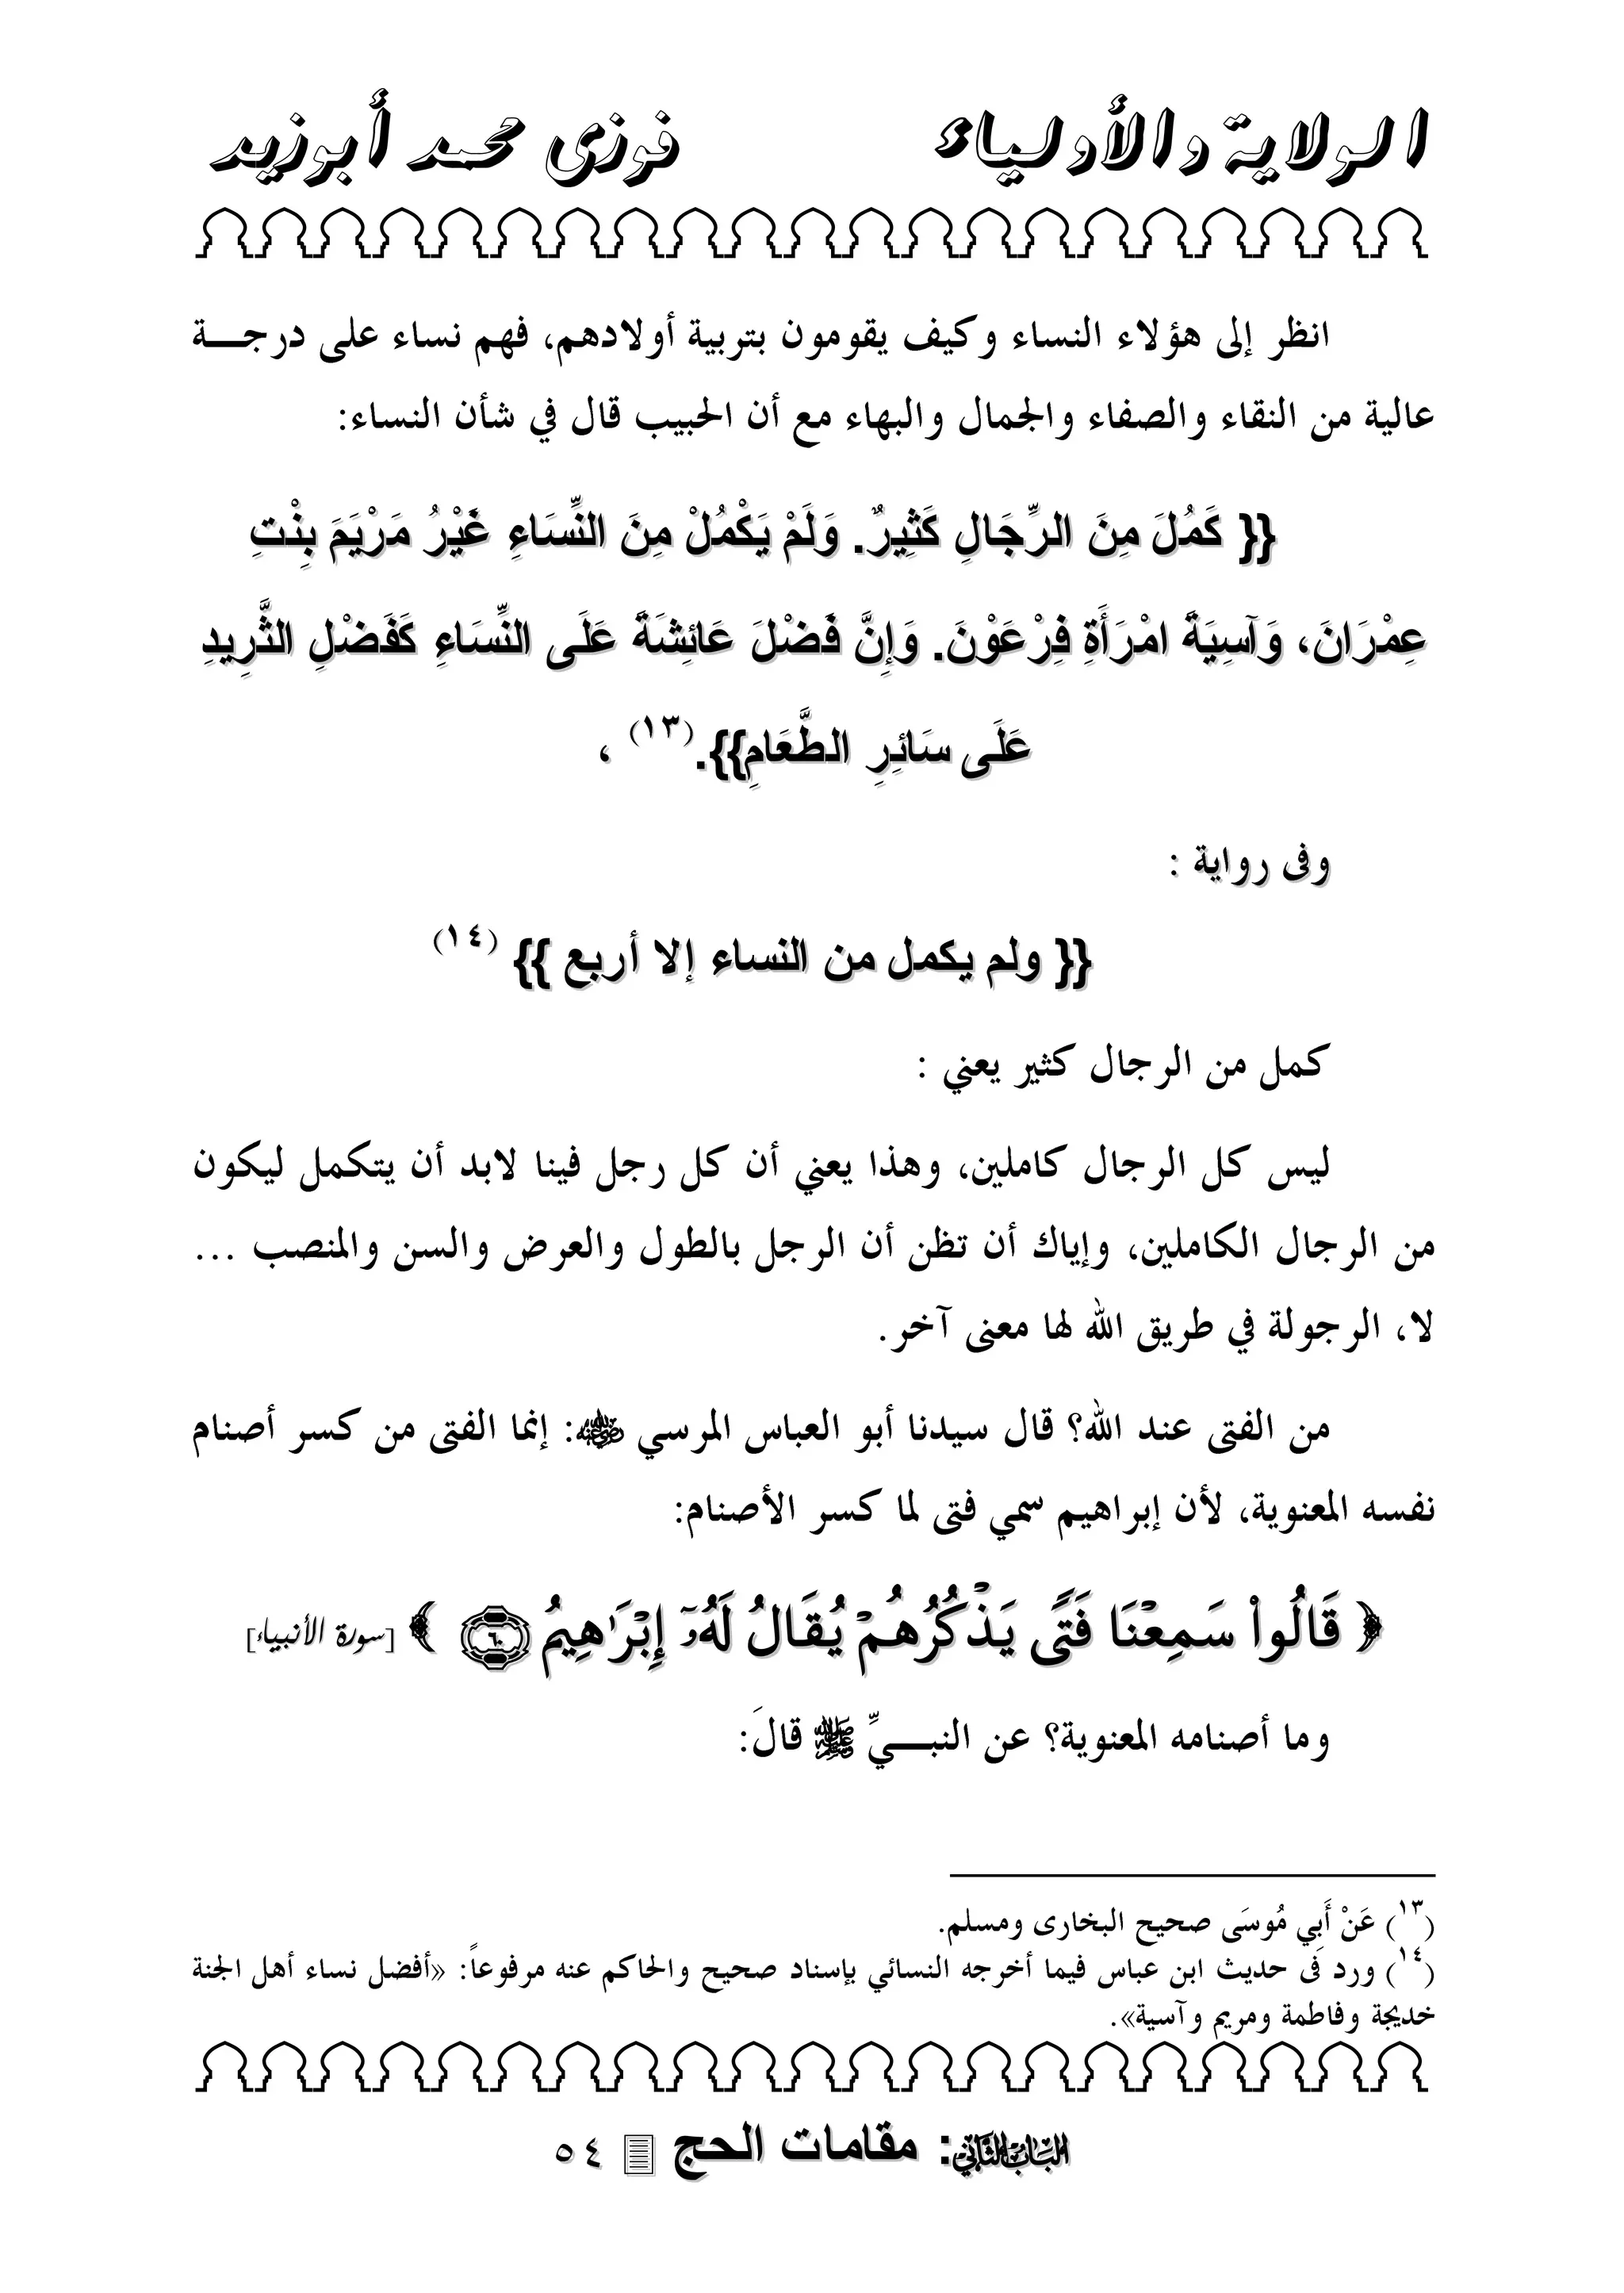 الولاية والأولياء فوزى محمد أبوزيد
انظر إلى هؤلاء النساء وكيف يقومون بتربية أولادهم، فهم نساء على درجـــة
عالية من النقاء والصفاء والجمال والبهاء مع أن الحبيب قال في شأن النساء:
{{ كَمُلَ مِنَ الرِّجَالِ كَثِيرٌ. وَلَمْ يَكْمُلْ مِنَ النِّسَاءِ غَيْرُ مَرْيَمَ بِنْتِ
عِمْرَانَ، وَآسِيَةَ امْرَأَةِ فِرْعَوْنَ. وَإِنَّ فَضْلَ عَائِشَةَ عَلَى النِّسَاءِ كَفَضْلِ الثَّرِيدِ
عَلَى سَائِرِ الطَّعَامِ}}.(١٣) ،
وفى رواية :
{{ ولم يكمل من النساء إلا أربع }} (١٤)
كمل من الرجال كثير يعني :
ليس كل الرجال كاملين، وهذا يعني أن كل رجل فينا لابد أن يتكمل ليكون
من الرجال الكاملين، وإياك أن تظن أن الرجل بالطول والعرض والسن والمنصب ...
لا، الرجولة في طريق الله لها معنى آخر.
من الفتى عند الله؟ قال سيدنا أبو العباس المرسي رضي الله عنه: إنما الفتى من كسر أصنام
نفسه المعنوية، لأن إبراهيم سمي فتى لما كسر الأصنام:
﴿ قَالُواْ سَمِعْنَا فَتًى يَذْكُرُهُمْ يُقَالُ لَهُۥٓ إِبْرَٰهِيمُ ۝٦٠ ﴾ [سورة الأنبياء]
وما أصنامه المعنوية؟ عن النبـــيِّ ﷺ قالَ:
(١٣) عَنْ أَبِي مُوسَى صحيح البخارى ومسلم.
(١٤) ورد فى حديث ابن عباس فيما أخرجه النسائي بإسناد صحيح والحاكم عنه مرفوعاً: «أفضل نساء أهل الجنة
خديجة وفاطمة ومريم وآسية».
الباب الثاني: مقامات الحج ٥٤